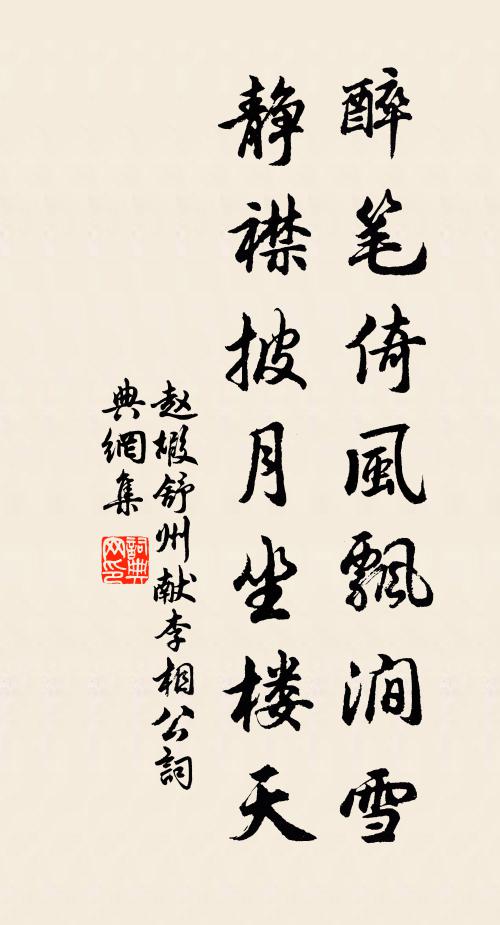 醉笔倚風飄澗雪
静襟披月坐楼天
赵嘏舒州献李相公詞
典網集
詞典网印